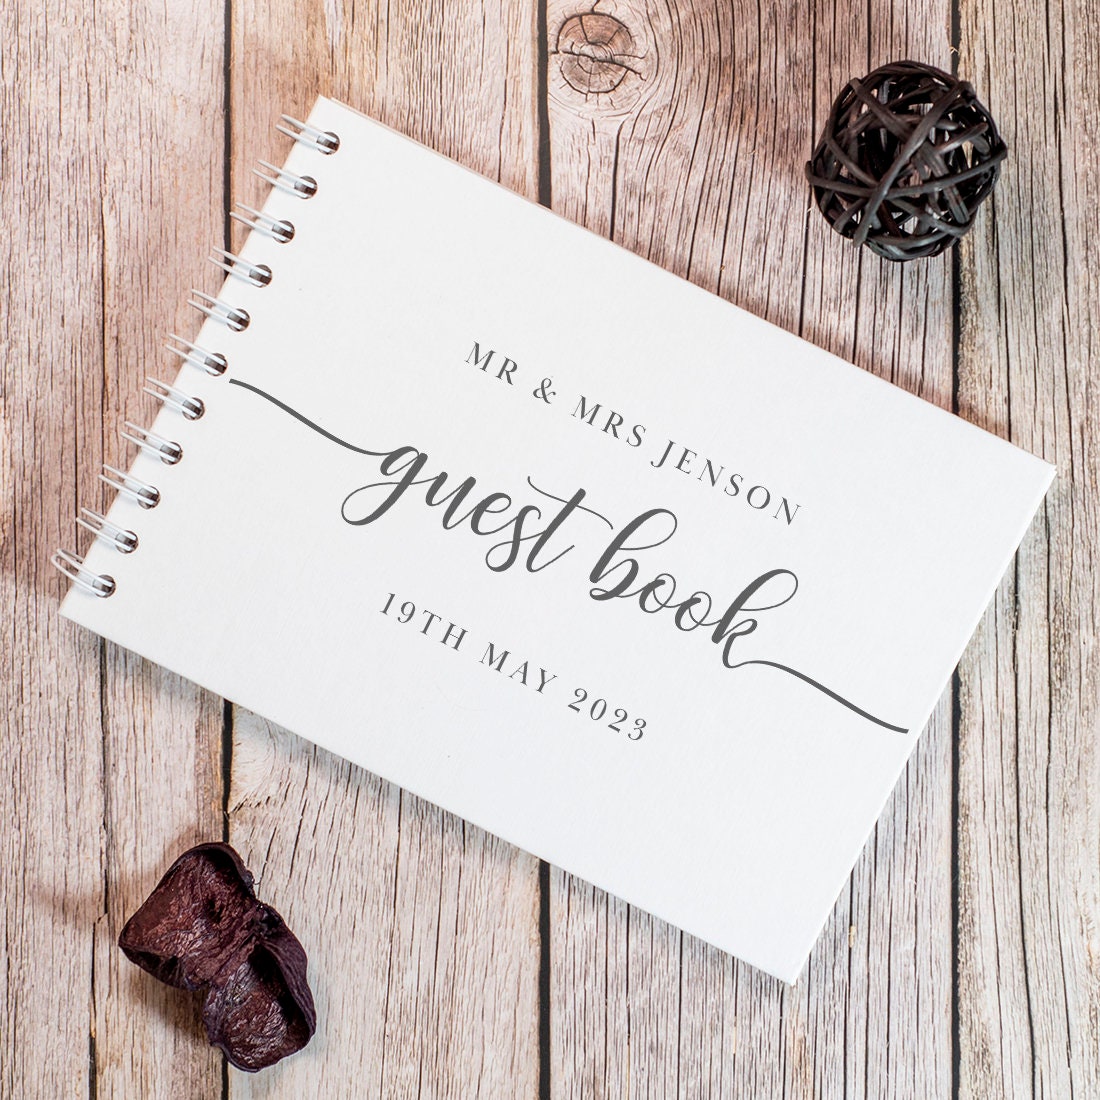 MR & MRS JENSON
guest book
19TH MAY 2023